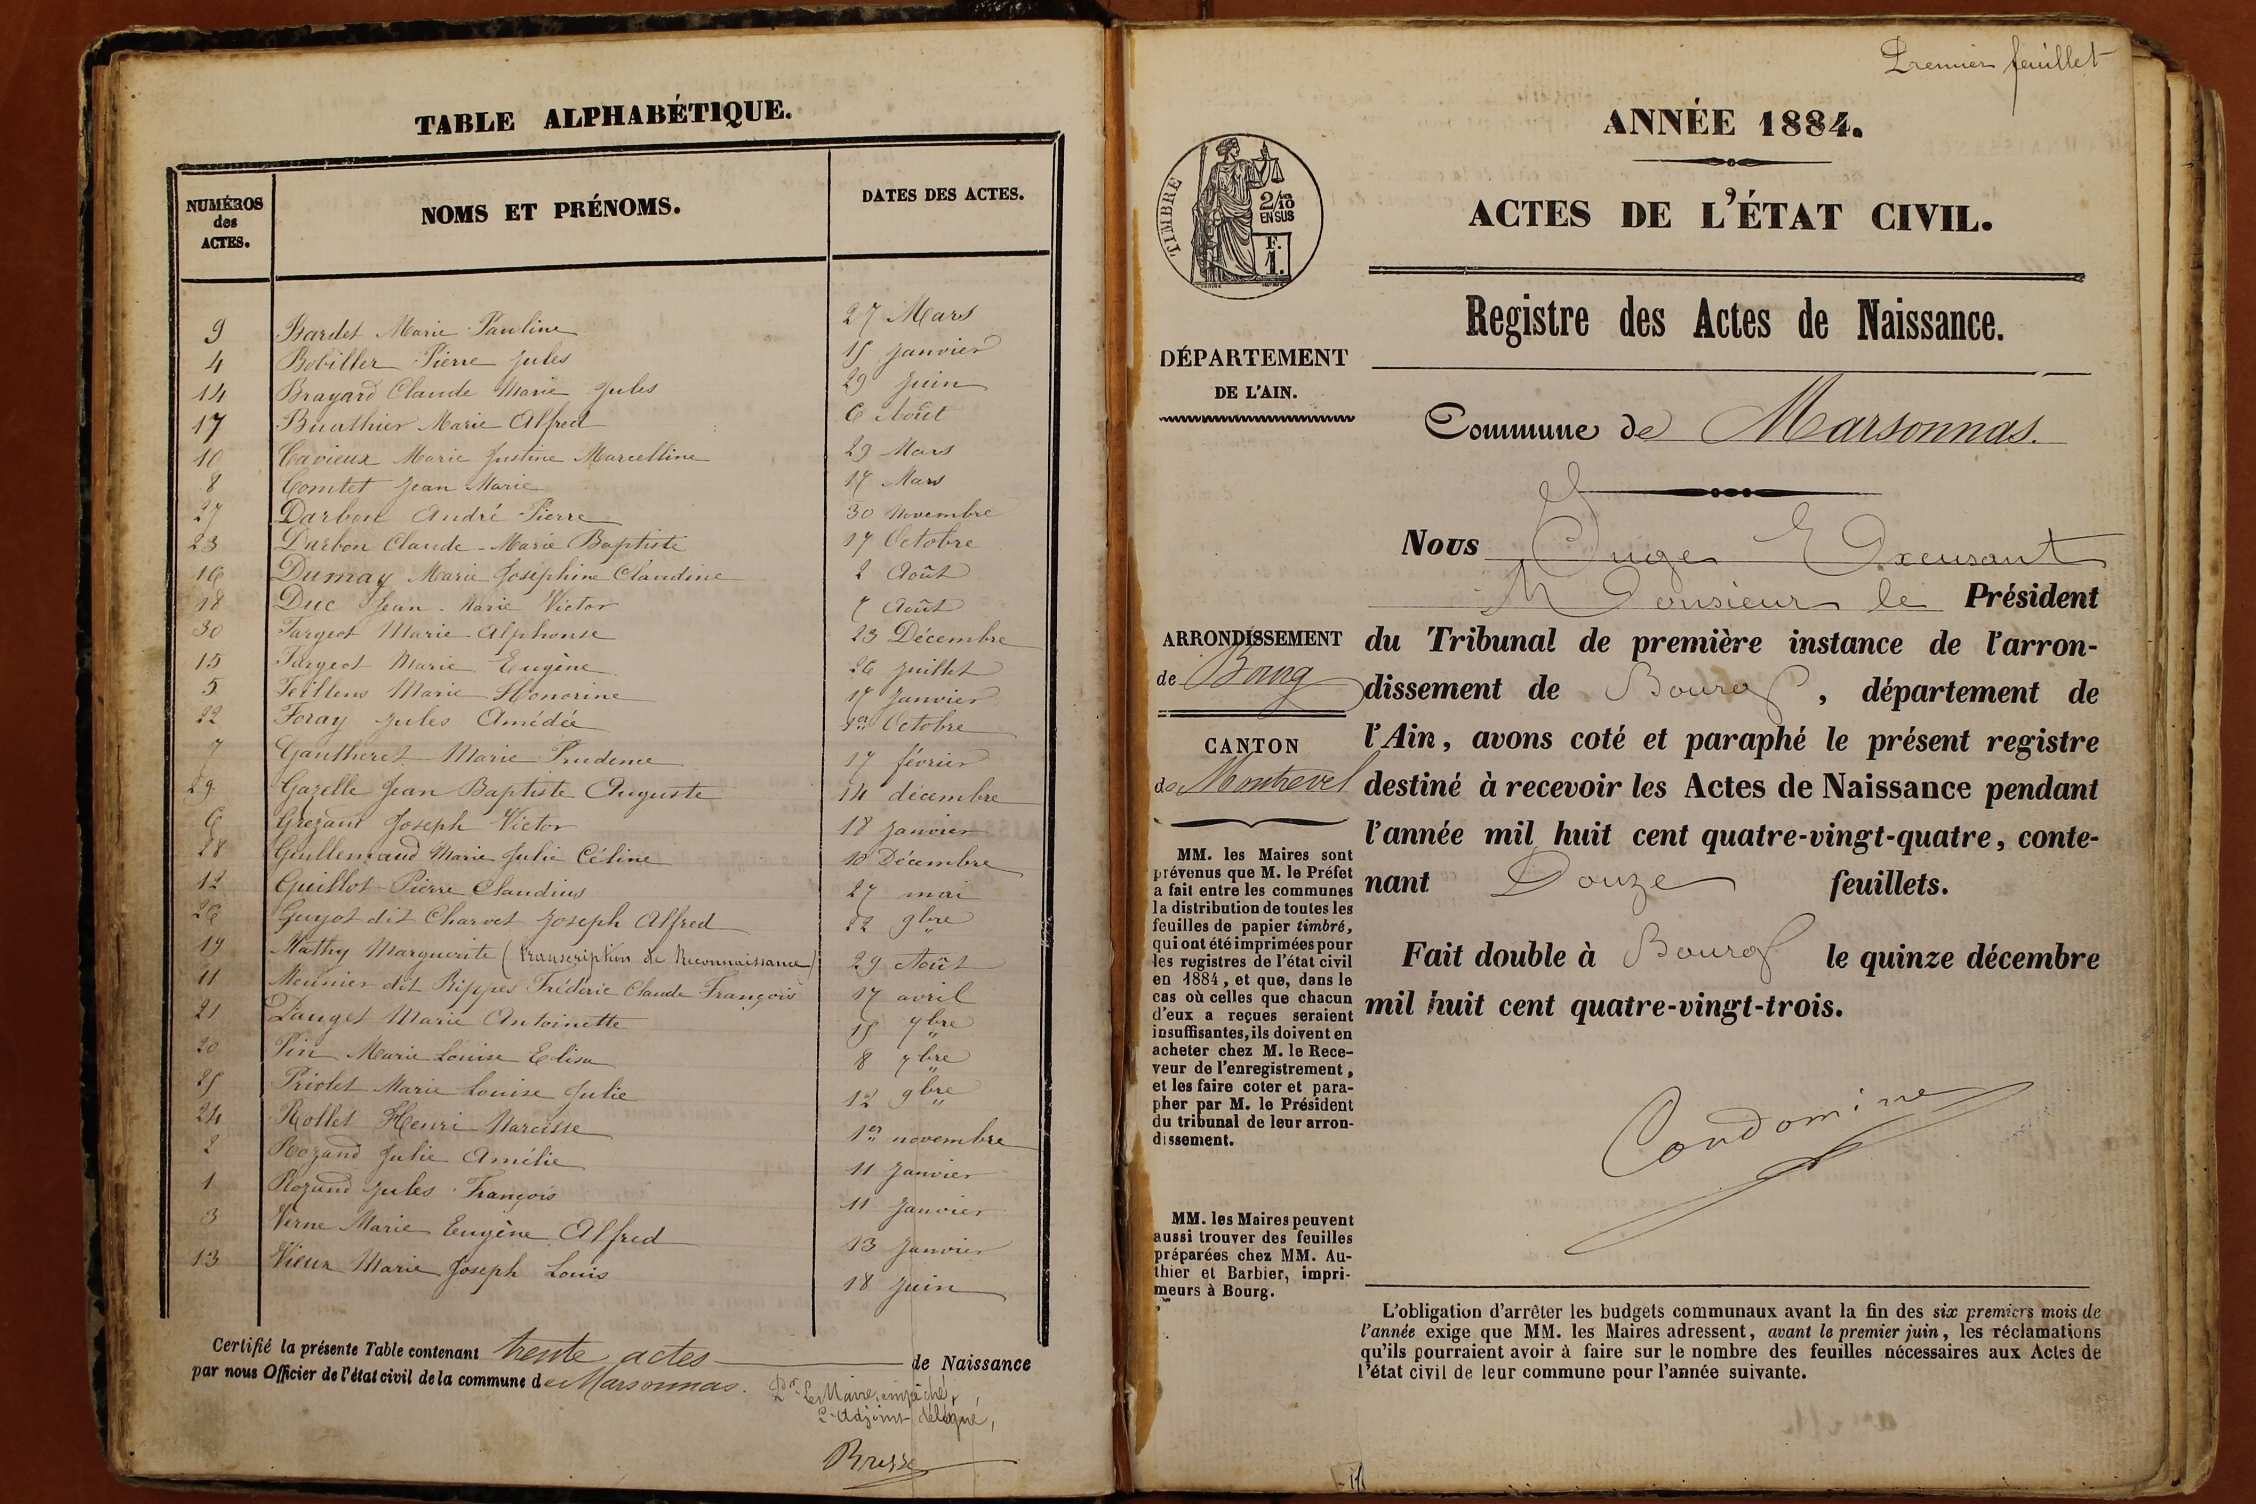 TABLE ALPHABÉTIQUE.
NUMÉROS des ACTES.
NOMS ET PRÉNOMS.
DATES DES ACTES.
9 Bardet Marie Pauline 27 Mars
4 Bobiller Pierre Jules 15 Janvier
14 Brayard Claude Marie Jules 29 Juin
17 Buathier Marie Alfred 6 Août
10 Cavieux Marie Justine Marcelline 29 Mars
8 Comtet Jean Marie 17 Mars
27 Darbon André Pierre 30 Novembre
23 Darbon Claude-Marie Baptiste 17 Octobre
16 Dumay Marie Joséphine Claudine 2 Août
18 Duc Jean-Marie Victor 7 Août
30 Fargeot Marie Alphonse 23 Décembre
15 Fargeot Marie Eugène 26 Juillet
5 Feillens Marie Honorine 17 Janvier
22 Foray Jules Amédée 1er Octobre
7 Gautheret Marie Prudence 17 février
29 Gazelle Jean Baptiste Auguste 14 décembre
6 Grezaud Joseph Victor 18 Janvier
28 Guillemaud Marie Julie Céline 10 Décembre
12 Guillot Pierre Claudius 27 mai
26 Guyot dit Charvet Joseph Alfred 22 9bre
19 Mathy Marguerite (transcription de Reconnaissance) 29 Août
11 Meunier dit Rippes Frédéric Claude François 17 avril
21 Pauget Marie Antoinette 15 7bre
20 Pin Marie Louise Elisa 8 7bre
25 Priolet Marie Louise Julie 12 9bre
24 Rollet Henri Narcisse 1er novembre
2 Rozand Julie Amélie 11 Janvier
1 Rozand Jules François 11 Janvier
3 Verne Marie Eugène Alfred 13 Janvier
13 Vieux Marie Joseph Louis 18 Juin
Certifié la présente Table contenant trente actes de Naissance
par nous Officier de l'état civil de la commune de Marsonnas.
Pr le Maire empêché,
L'Adjoint délégué,
Bresse
Premier feuillet
ANNÉE 1884.
TIMBRE
2/10
EN SUS
F.
1.
ACTES DE L'ÉTAT CIVIL.
Registre des Actes de Naissance.
DÉPARTEMENT
DE L'AIN.
Commune de Marsonnas.
ARRONDISSEMENT
de Bourg
CANTON
de Montrevel
MM. les Maires sont
prévenus que M. le Préfet
a fait entre les communes
la distribution de toutes les
feuilles de papier timbré,
qui ont été imprimées pour
les registres de l'état civil
en 1884, et que, dans le
cas où celles que chacun
d'eux a reçues seraient
insuffisantes, ils doivent en
acheter chez M. le Rece-
veur de l'enregistrement,
et les faire coter et para-
pher par M. le Président
du tribunal de leur arron-
dissement.
MM. les Maires peuvent
aussi trouver des feuilles
préparées chez MM. Au-
thier et Barbier, impri-
meurs à Bourg.
Nous Juge Excusant
Monsieur le Président
du Tribunal de première instance de l'arron-
dissement de Bourg, département de
l'Ain, avons coté et paraphé le présent registre
destiné à recevoir les Actes de Naissance pendant
l'année mil huit cent quatre-vingt-quatre, conte-
nant Douze feuillets.
Fait double à Bourg le quinze décembre
mil huit cent quatre-vingt-trois.
Condomine
L'obligation d'arrêter les budgets communaux avant la fin des six premiers mois de
l'année exige que MM. les Maires adressent, avant le premier juin, les réclamations
qu'ils pourraient avoir à faire sur le nombre des feuilles nécessaires aux Actes de
l'état civil de leur commune pour l'année suivante.